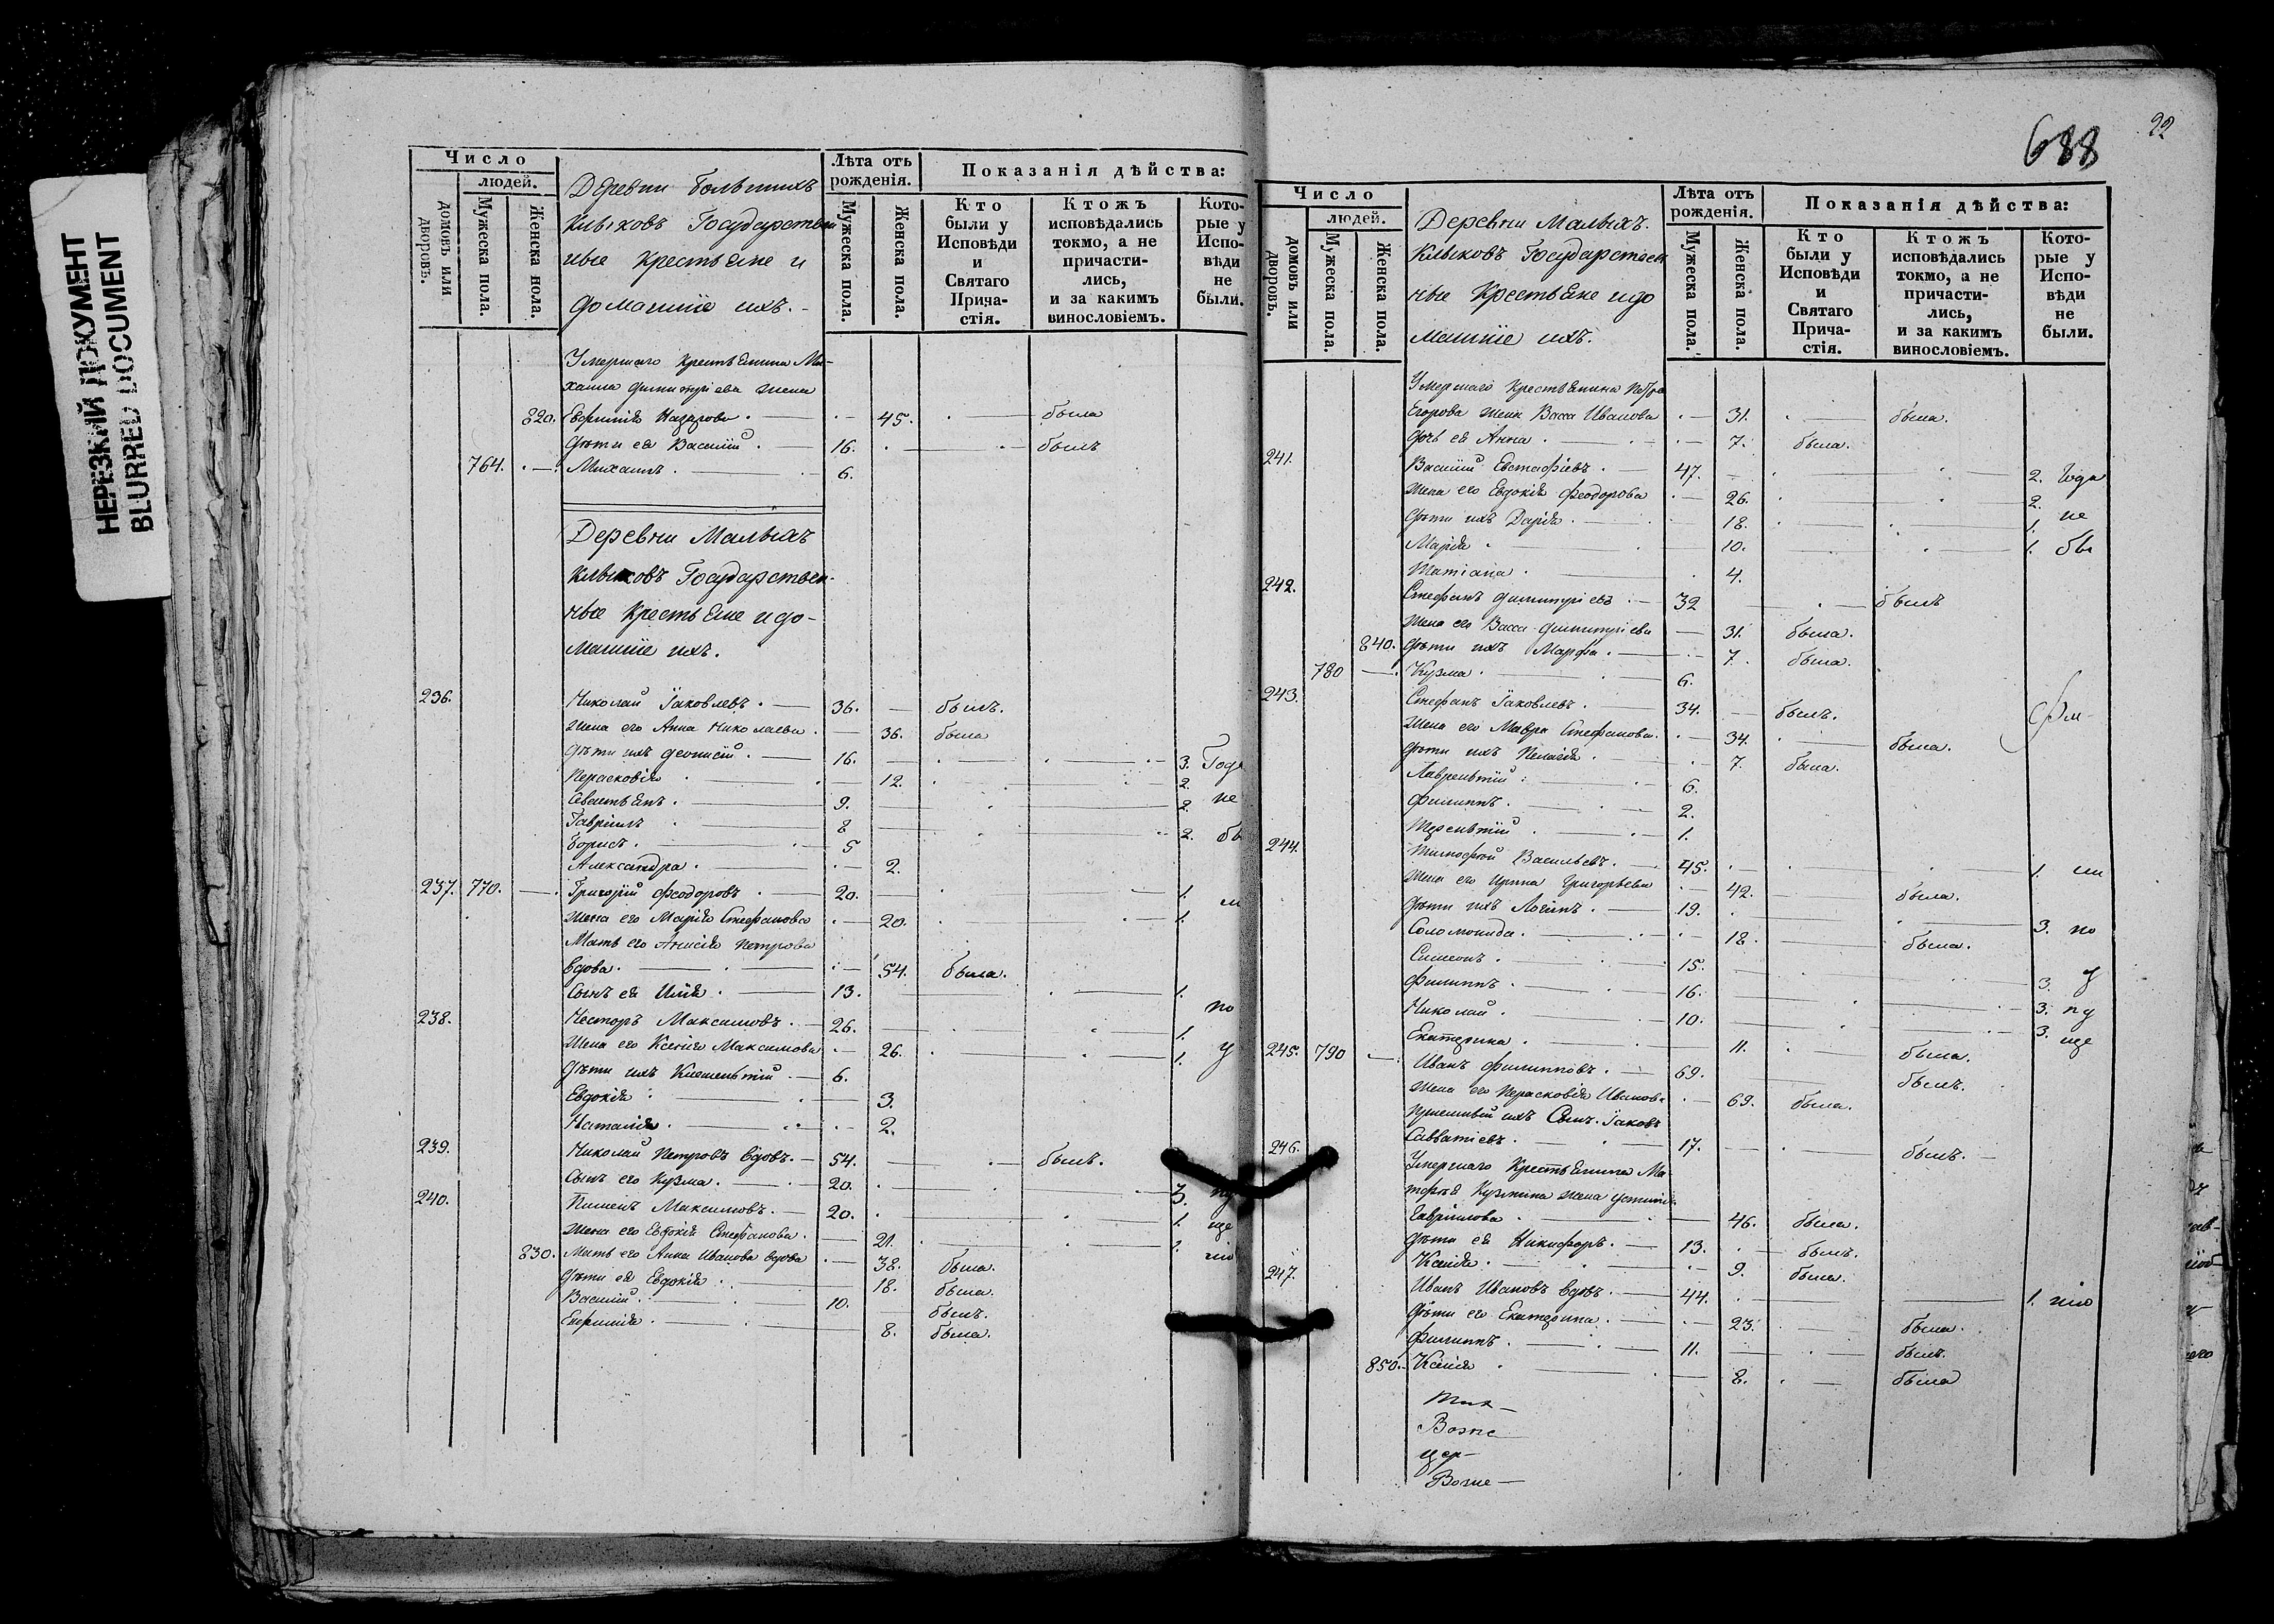 НЕРЕЗКИЙ ДОКУМЕНТ
BLURRED DOCUMENT
Число
людей.
домовъ или дворовъ.
Мужеска пола.
Женска пола.
Деревни Большихъ
Клыковъ Государствен
ные Крестьяне и
домашніе ихъ.
Лѣта отъ рожденія.
Мужеска пола.
Женска пола.
Показанія дѣйства:
Кто были у Исповѣди и Святаго Прича- стія.
Ктожъ исповѣдались токмо, а не причасти- лись, и за какимъ винословіемъ.
Кото- рые у Испо- вѣди не были.
Умершаго крестьянина Ми-
хаила Димитріева жена
820. Евфимія Назарова. 45. была
дѣти ея Василій. 16. былъ
764. Михаилъ. 6.
Деревни Малыхъ
Клыковъ Государствен-
ные Крестьяне и до-
машніе ихъ.
236. Николай Іаковлевъ. 36. былъ.
Жена его Анна Николаева. 36. была
дѣти ихъ Деонисій. 16. 3. Года
Перасковія 12. 2.
Севастьянъ. 9. 2. не
Гавріилъ 8 2. бы
Борисъ. 5
Александра. 2.
237. 770. Григорій Феодоровъ 20. 1.
жена его Марія Стефанова 20. 1. ли
Мать его Анисія Петрова
вдова. 54. была.
Сынъ ея Илія. 13. 1.
по
238. Несторъ Максимовъ. 26. 1.
Жена его Ксенія Максимова 26. 1. у
дѣти ихъ Климентій. 6.
Евдокія 3.
Наталія. 2.
239. Николай Петровъ вдовъ. 54. былъ.
Сынъ его Кузма. 20. 3. пу
240. Пименъ Максимовъ. 20. 1. ще
жена его Евдокія Стефанова. 21. 1. нію
830. Мать его Анна Иванова вдова 38. была.
дѣти ея Евдокія. 18. была.
Василій. 10. былъ.
Евфимія. 8. была.
688
22
Число
людей.
домовъ или дворовъ.
Мужеска пола.
Женска пола.
Деревни Малыхъ
Клыковъ Государствен
ные Крестьяне и до
машніе ихъ.
Лѣта отъ рожденія.
Мужеска пола.
Женска пола.
Показанія дѣйства:
Кто были у Исповѣди и Святаго Прича- стія.
Ктожъ исповѣдались токмо, а не причасти- лись, и за какимъ винословіемъ.
Кото- рые у Испо- вѣди не были.
Умершаго крестьянина Петра
Егорова жена Васса Иванова 31. была.
дочь ея Анна. 7. была.
241. Василій Евстафіевъ. 47. 2. Года
Жена его Евдокія Феодорова 26. 2.
дѣти ихъ Дарія. 18. 1. не
Марія 10. 1. бы
Татіана. 4.
242. Стефанъ Димитріевъ. 32 былъ
Жена его Васса Димитріева 31. была.
840. дѣти ихъ Марфа. 7. была.
780 Кузма. 6.
243. Стефанъ Іаковлевъ. 34. былъ.
Жена его Мавра Стефанова. 34. была.
дѣти ихъ Пелагія 7. была.
Лаврентій 6.
Филиппъ. 2.
Терентій 1.
244. Тимофей Васильевъ. 45. 1. ли
Жена его Ирина Григорьева 42. была.
дѣти ихъ Логинъ. 19. 3. по
Соломонида. 18. была.
Симеонъ. 15. 3. у
Филиппъ. 16. 3. пу
Николай. 10. 3. ще
Екатерина. 11. была.
245. 790 Иванъ Филипповъ. 69. былъ.
Жена его Перасковія Иванова 69. была.
Приемный ихъ Сынъ Іаковъ
Савватіевъ. 17. былъ.
246. Умершаго Крестьянина Ма-
тфея Кузмина жена Устинія
Гавріилова 46. была.
дѣти ея Никифоръ. 13. былъ.
Ксенія. 9. была.
247. Иванъ Ивановъ вдовъ. 44. 1. нію
дѣти его Екатерина. 23. была.
Филиппъ. 11. былъ.
850. Ксенія 8. была
Возне
цер